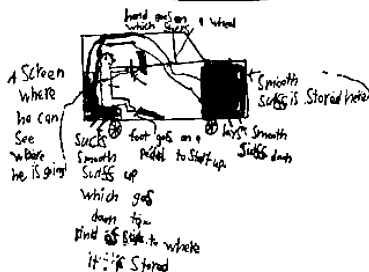 hand goes on a wheel
which steers
A Screen
where
he can
see
where
he is going
Smooth
Suffs is Stored here
Sucks
Smooth
Suffs up
which goes
down to
kind of to where
it is Stored
foot goes on a
Pedal to Start up
lays Smooth
Suffs down